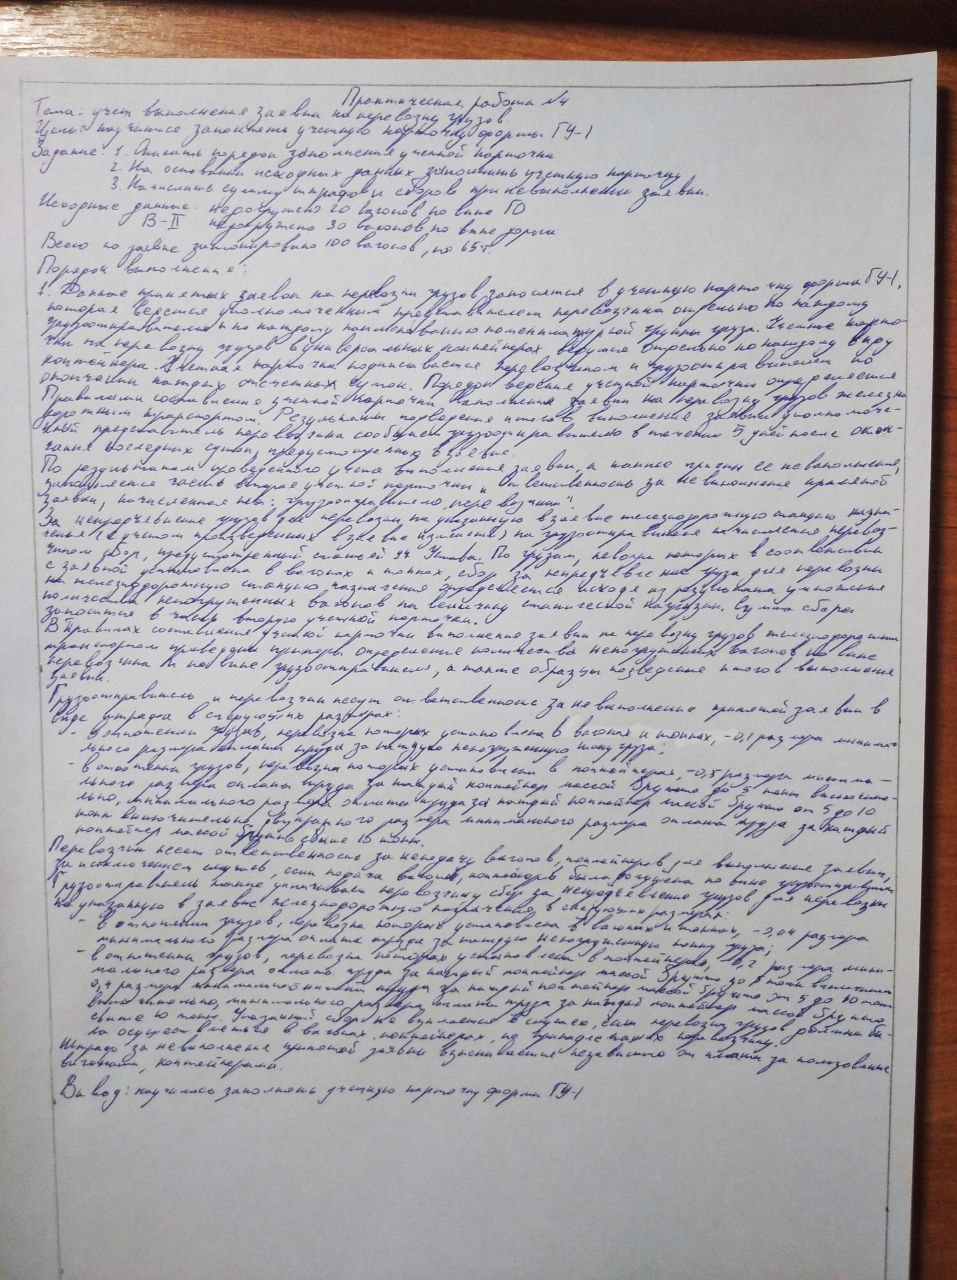 Практическая работа №4
Тема: учет выполнения заявки на перевозку грузов.
Цель: научится заполнять учетную карточку формы ГУ-1
Задание: 1. Описать порядок заполнения учетной карточки
2. На основании исходных данных заполнить учетную карточку
3. Начислить сумму штрафов и сборов при невыполнении заявки.
Исходные данные: недогружено 20 вагонов по вине ГО
В-II недогружено 30 вагонов по вине дороги
Всего по заявке запланировано 100 вагонов, по 65т.
Порядок выполнение:
1. Данные принятых заявок на перевозки грузов заносятся в учетную карточку формы ГУ-1,
которая ведется уполномоченным представителем перевозчика отдельно по каждому
грузоотправителю и по каждому наименованию номенклатурной группы груза. Учетные карто-
чки на перевозку грузов в универсальных контейнерах ведутся отдельно по каждому виду
контейнера. Учетная карточка подписывается перевозчиком и грузоотправителем по
окончании каждых отчетных суток. Порядок ведения учетной карточки определяется
Правилами составления учетной карточки выполнения заявки на перевозку грузов железно-
дорожным транспортом. Результаты подведения итогов выполнения заявки уполномоче-
нный представитель перевозчика сообщает грузоотправителю в течении 5 дней после окон-
чания последних суток, предусмотренных в заявке.
По результатам проведенного учета выполнения заявки, а также причин ее невыполнения,
заполняется часть вторая учетной карточки „Ответственность за невыполнение принятой
заявки, начисленная на: грузоотправителю, перевозчику".
За непредъявление грузов для перевозки на указанную в заявке железнодорожную станцию назна-
чения (с учетом произведенных в заявке изменений) на грузоотправителя начисляется перевоз-
чиком сбор, предусмотренный статьей 94 Устава. По грузам, перевозка которых в соответствии
с заявкой установлена в вагонах и тоннах, сбор за непредъявление груза для перевозки
на железнодорожную станцию назначения определяется исходя из результата умножения
количества непогруженных вагонов на величину статической нагрузки. Сумма сбора
заносится в часть вторую учетной карточки.
В Правилах составления учетной карточки выполнения заявки на перевозку грузов железнодорожным
транспортом приведены примеры определения количества непогруженных вагонов по вине
перевозчика и по вине грузоотправителя, а также образцы подведения итогов выполнения
заявки.
Грузоотправитель и перевозчик несут ответственность за невыполнение принятой заявки в
виде штрафа в следующих размерах:
- в отношении грузов, перевозка которых установлена в вагонах и тоннах, -0,1 размера минима-
льного размера оплаты труда за каждую непогруженную тонну груза;
- в отношении грузов, перевозка которых установлена в контейнерах, -0,5 размера минима-
льного размера оплаты труда за каждый контейнер массой брутто до 5 тонн включите-
льно, минимального размера оплаты труда за каждый контейнер массой брутто от 5 до 10
тонн включительно, двукратного размера минимального размера оплаты труда за каждый
контейнер массой брутто свыше 10 тонн.
Перевозчик несет ответственность за неподачу вагонов, контейнеров для выполнения заявки,
за исключением случаев, если подача вагонов, контейнеров была допущена по вине грузоотправителя.
Грузоотправитель также уплачивает перевозчику сбор за непредъявление грузов для перевозки
на указанную в заявке железнодорожную назначения в следующих размерах:
- в отношении грузов, перевозка которых установлена в вагонах и тоннах, -0,04 размера
минимального размера оплаты труда за каждую непогруженную тонну груза;
- в отношении грузов, перевозка которых установлена в контейнерах, -0,2 размера мини-
мального размера оплаты труда за каждый контейнер массой брутто до 5 тонн включительно
0,4 размера минимального размера оплаты труда за каждый контейнер массой брутто от 5 до 10 тонн
включительно, минимального размера оплаты труда за каждый контейнер массой брутто
свыше 10 тонн. Указанный сбор не взимается в случае, если перевозка грузов должна бы-
ла осуществляться в вагонах, контейнерах, не принадлежащих перевозчику.
Штраф за невыполнение принятой заявки взыскивается независимо от платы за пользование
вагонами, контейнерами.
Вывод: научилась заполнять учетную карточку формы ГУ-1